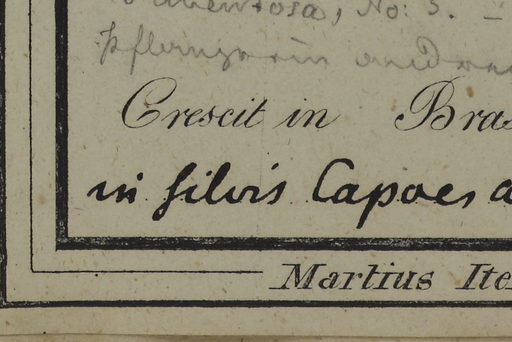 No: 3. –
Crescit in Bras
in silvis Capoes a
Martius Ite